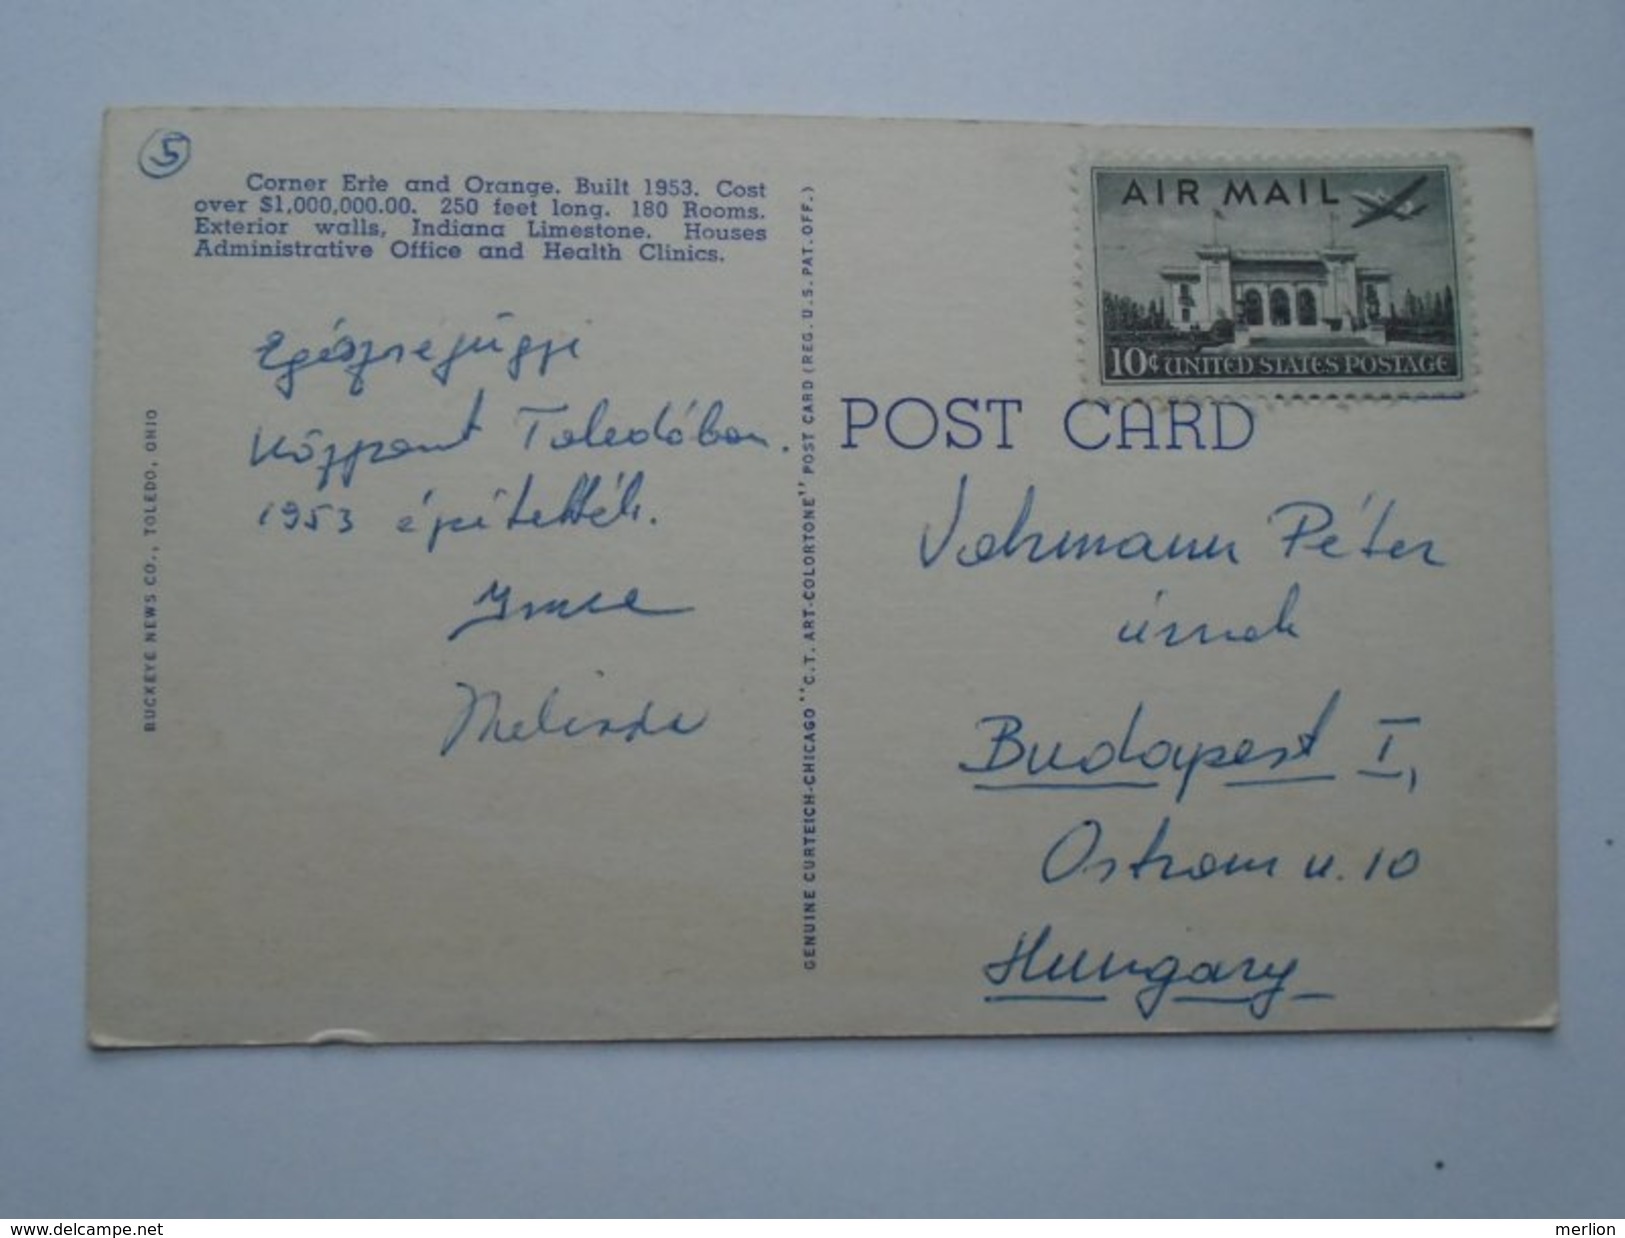 5
Corner Erie and Orange. Built 1953. Cost
over $1,000,000.00. 250 feet long. 180 Rooms.
Exterior walls, Indiana Limestone. Houses
Administrative Office and Health Clinics.
Egészségügyi
Központ Toledóban.
1953 építették.
Imre
Melinda
BUCKEYE NEWS CO., TOLEDO, OHIO
GENUINE CURTEICH-CHICAGO "C.T. ART-COLORTONE" POST CARD (REG. U.S. PAT. OFF.)
AIR MAIL
10¢ UNITED STATES POSTAGE
POST CARD
Péter
úrnak
Budapest I,
Ostrom u. 10
Hungary
delcampe.net
merlion